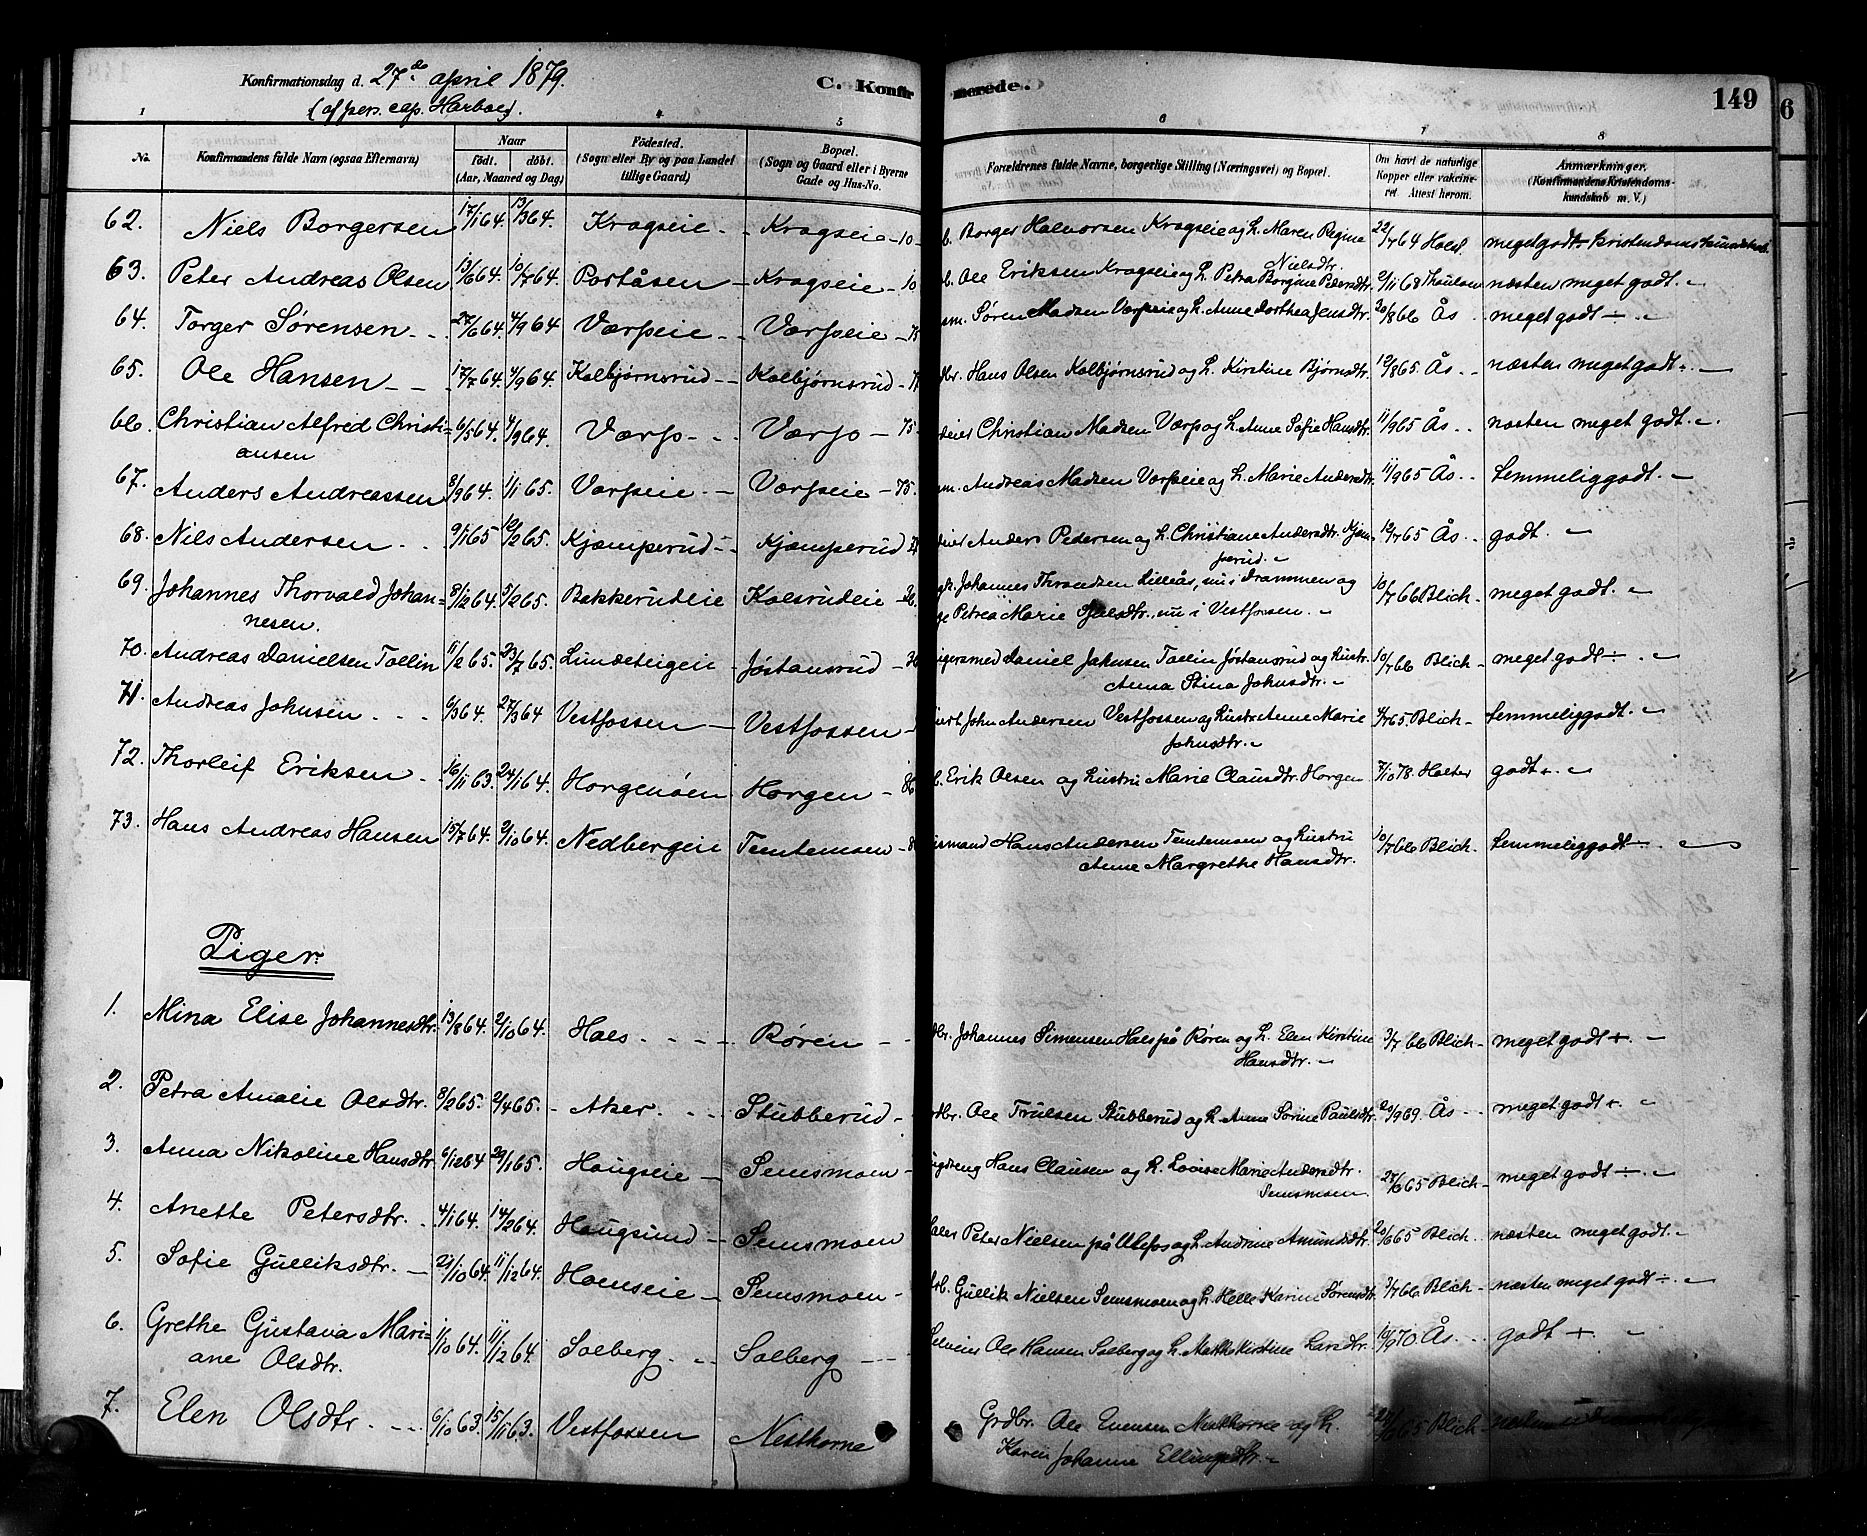 Konfirmationsdag d. 27de april 1879.
(af pers. cap. Harboe).
C. Konfirmerede.
149
6
1 4 5 6 7 8
No. Konfirmandens fulde Navn (ogsaa Efternavn) Naar født. døbt. (Aar, Maaned og Dag) Fødested. (Sogn eller By og paa Landet tillige Gaard) Bopæl. (Sogn og Gaard eller i Byerne Gade og Hus-No. Forældrenes fulde Navne, borgerlige Stilling (Næringsvei) og Bopæl. Om havt de naturlige Kopper eller vakcineret. Attest herom. Anmærkninger. (Konfirmandens Kristendomskundskab m. V.)
62. Niels Borgersen 17/1 64. 13/3 64. Kragseie - Kragseie - 10 Borger Halvorsen Kragseie og h. Maren Regine Nielsdtr. 22/7 64 Hals. meget godt kristendomskundskab
63. Peter Andreas Olsen 13/6 64. 10/7 64. Portåsen - Kragseie - 10 Ole Eriksen Kragseie og h. Petra Borgine Pedersdtr. 2/11 68 Thaulow næsten meget godt.
64. Torger Sørensen 27/6 64. 4/9 64. Værpeie - Værpeie Søren Madsen Værpeie og h. Anne Dorthea Jensdtr. 20/8 66 Ås meget godt ÷
65. Ole Hansen 17/7 64. 4/9 64. Kolbjørnsrud - Kolbjørnsrud Hans Olsen Kolbjørnsrud og h. Kirstine Bjørnsdtr. 12/8 65. Ås næsten meget godt ÷
66. Christian Alfred Christiansen 6/5 64. 4/9 64. Værp - Værp - 75. Christian Madsen Værp og h. Anne Sofie Hansdtr. 11/9 65 Ås næsten meget godt.
67. Anders Andreassen 8/9 64. 1/1 65. Værpeie - Værpeie - 75. Andreas Madsen Værpeie og h. Marie Andersdtr. 11/9 65 Ås temmelig godt.
68. Nils Andersen 9/1 65 12/2 65. Kjæmperud - Kjæmperud Anders Pedersen og h. Christiane Andersdtr. Kjæmperud. 12/7 65 Ås godt.
69. Johannes Thorvald Johannesen. 8/12 64. 5/2 65. Bakkerudeie Kolsrudeie - 26. Johannes Throndsen Lilleås, nu i Drammen og Petrea Marie Gulsdtr., nu i Vestfossen. 10/7 66 Blich meget godt.
70. Andreas Danielsen Tollin 11/2 65. 23/7 65. Lundeteigeie - Jøstansrud Daniel Johnsen Tollin Jøstansrud og hustr. Anna Stina Johnsdtr. 10/7 66 Blich meget godt ÷
71. Andreas Johnsen 6/3 64. 27/3 64 Vestfossen - Vestfossen John Andersen Vestfossen og hustr. Anne Marie Johnsdtr. 4/7 65 Blich temmelig godt.
72. Thorleif Eriksen 16/11 63. 24/1 64. Horgenøen Horgen - 86 Erik Olsen og hustru Marie Clausdtr. Horgen 7/10 78. Holter godt +
73. Hans Andreas Hansen 15/7 64. 2/10 64. Nedbergeie Temtemoen - Hans Andersen Temtemoen og hustru Anne Margrethe Hansdtr. 10/7 66 Blich temmelig godt ÷
Piger.
1. Mina Elise Johannesdtr. 13/8 64. 2/10 64. Hals Røren - Johannes Simensen Hals på Røren og h. Elen Kirstine Hansdtr. 3/7 66 Blich meget godt +
2. Petra Amalie Olsdtr. 8/2 65. 2/4 65. - Aker. Stubberud - Ole Trulsen Stubberud og h. Anne Sørine Paulsdtr. 21/9 69. Ås meget godt +
3. Anna Nikoline Hansdtr 6/12 64 29/1 65. Haugseie - Semsmoen - Hans Clausen og h. Lovise Marie Andersdtr. Semsmoen 27/6 65 Blich meget godt ÷
4. Anette Petersdtr. 4/1 64. 14/2 64. Haugsund - Semsmoen Peter Nielsen på Ullefos og h. Andrine Amundsdtr. 20/6 65 Blich næsten meget godt.
5. Sofie Gulliksdtr. 23/10 64. 11/12 64. Hamseie - Semsmoen - Gullik Nielsen Semsmoen og h. Helle Karine Sørensdtr. 3/7 66 Blich næsten meget godt ÷
6. Grethe Gustava Mariane Olsdtr. 1/10 64. 11/12 64. Solberg. Solberg Selveier Ole Hansen Solberg og h. Marthe Kirstine Larsdtr. 16/9 70. Ås godt +
7. Elen Olsdtr. 6/10 63. 15/11 63. Vestfossen Nesthorne Grdbr. Ole Evensen Nesthorne og h. Karen Johanne Ellingsdtr. 6 65 Blich